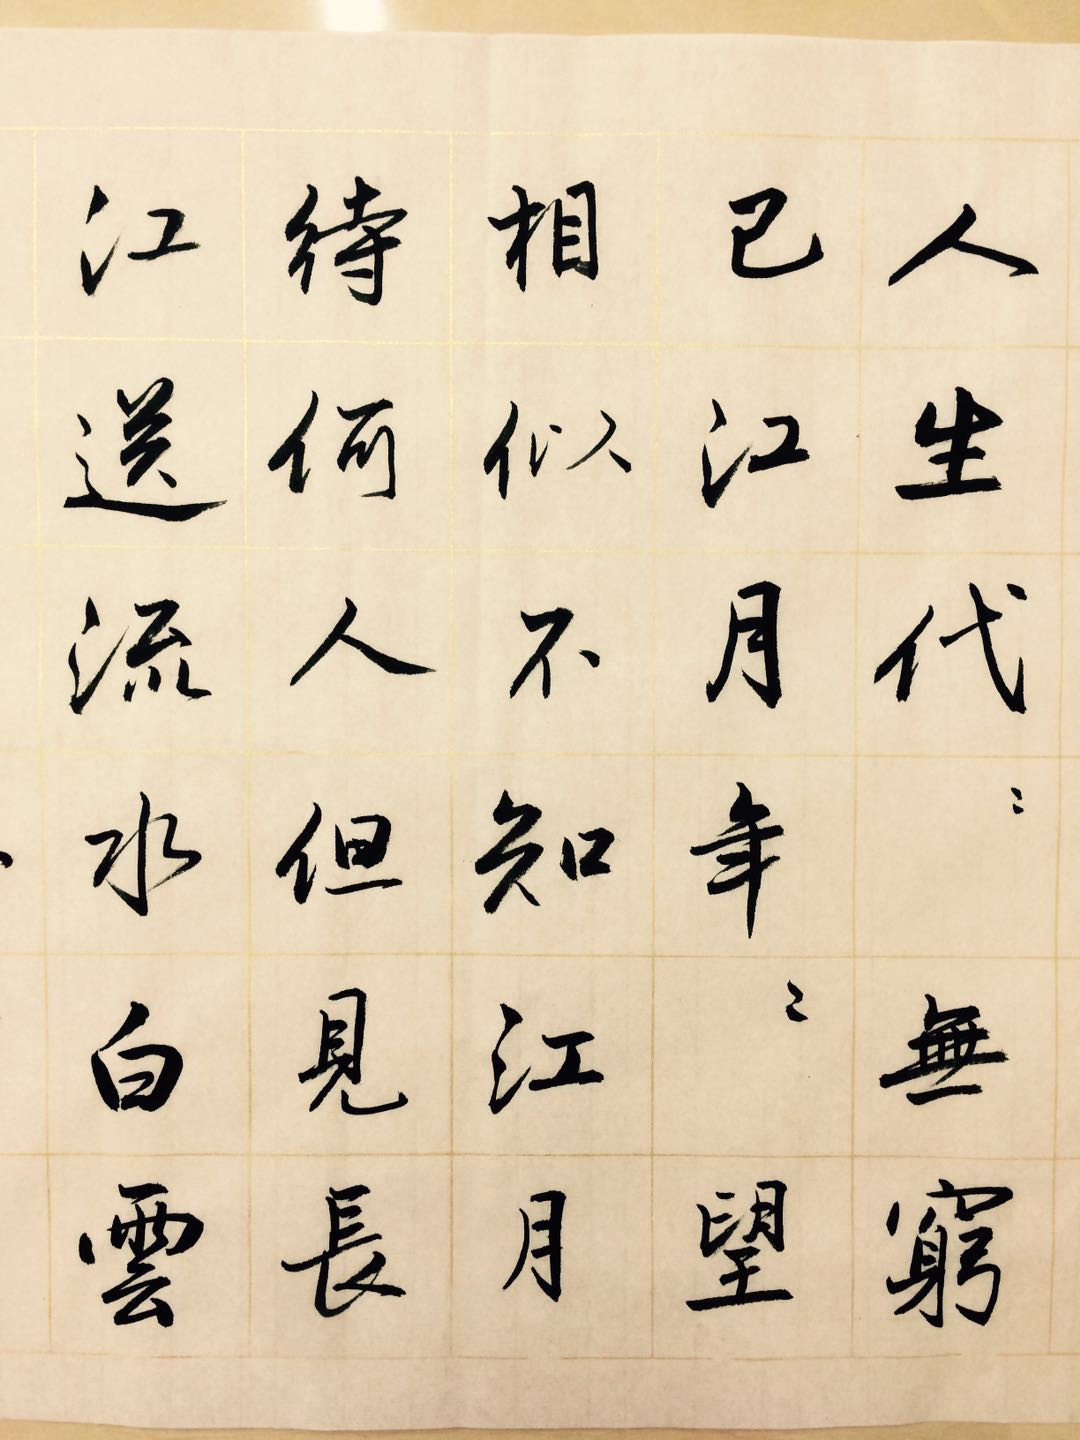 人生代〻無窮
已江月年〻望
相似不知江月
待何人但見長
江送流水白雲